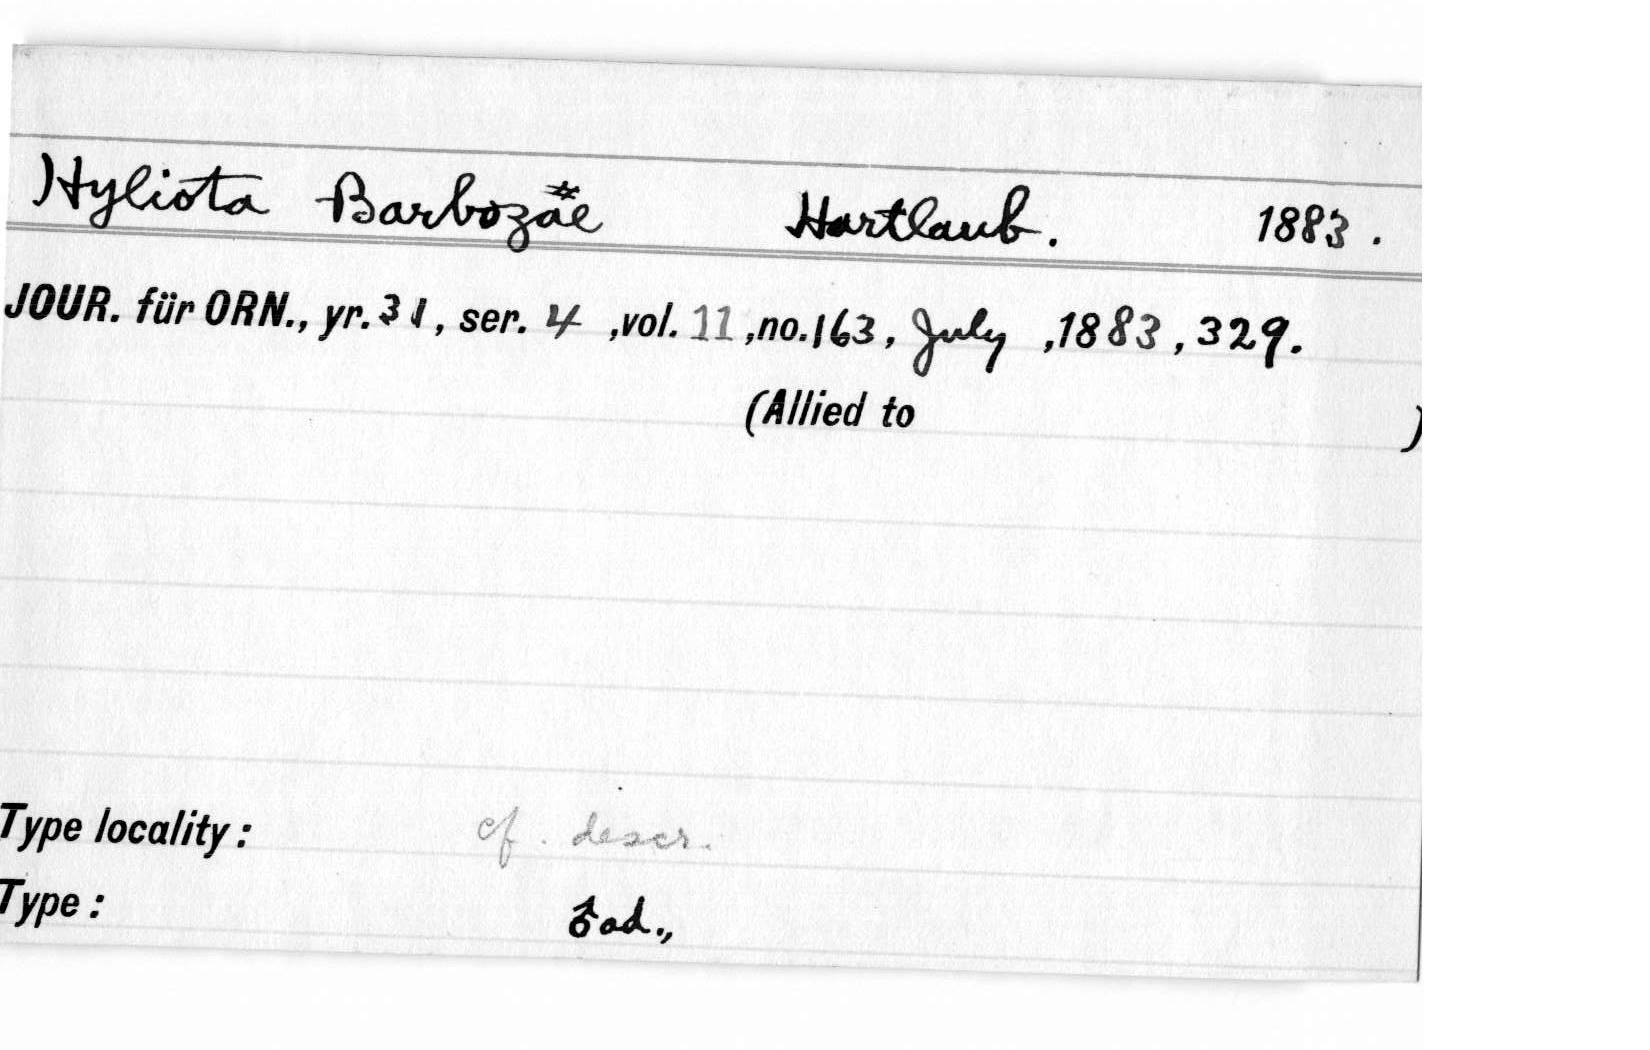 Hyliota Barbozäe Hartlaub. 1883.
JOUR. für ORN., yr. 31, ser. 4, vol. 11, no. 163, July, 1883, 329.
(Allied to )
Type locality: cf. descr.
Type: ♂ ad.,